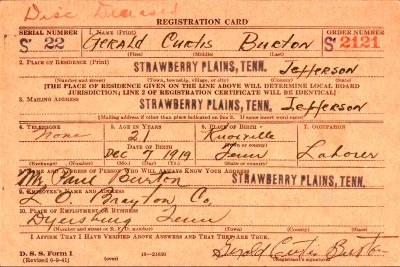 Disc Deceased
REGISTRATION CARD
SERIAL NUMBER 1. Name (Print) ORDER NUMBER
S 22 Gerald Curtis Burton S 2121
(First) (Middle) (Last)
2. PLACE OF RESIDENCE (Print)
STRAWBERRY PLAINS, TENN. Jefferson
(Number and street) (Town, township, village, or city) (County) (State)
[THE PLACE OF RESIDENCE GIVEN ON THE LINE ABOVE WILL DETERMINE LOCAL BOARD
JURISDICTION; LINE 2 OF REGISTRATION CERTIFICATE WILL BE IDENTICAL]
3. MAILING ADDRESS
STRAWBERRY PLAINS, TENN. Jefferson
[Mailing address if other than place indicated on line 2. If same insert word same]
4. TELEPHONE 5. AGE IN YEARS 6. PLACE OF BIRTH 7. OCCUPATION
None 21 Knoxville
DATE OF BIRTH (Town or county)
Dec 7 1919 Tenn Laborer
(Exchange) (Number) (Mo.) (Day) (Yr.) (State or country)
NAME AND ADDRESS OF PERSON WHO WILL ALWAYS KNOW YOUR ADDRESS
Burton STRAWBERRY PLAINS, TENN.
9. EMPLOYER'S NAME AND ADDRESS
L. O. Brayton Co.
10. PLACE OF EMPLOYMENT OR BUSINESS
Dyersburg Tenn
(Number and street or R. F. D. number) (Town) (County) (State)
I AFFIRM THAT I HAVE VERIFIED ABOVE ANSWERS AND THAT THEY ARE TRUE.
D. S. S. Form 1
(Revised 6-9-41) (over) 16—21630 Gerald Curtis Burton
(Registrant's signature)